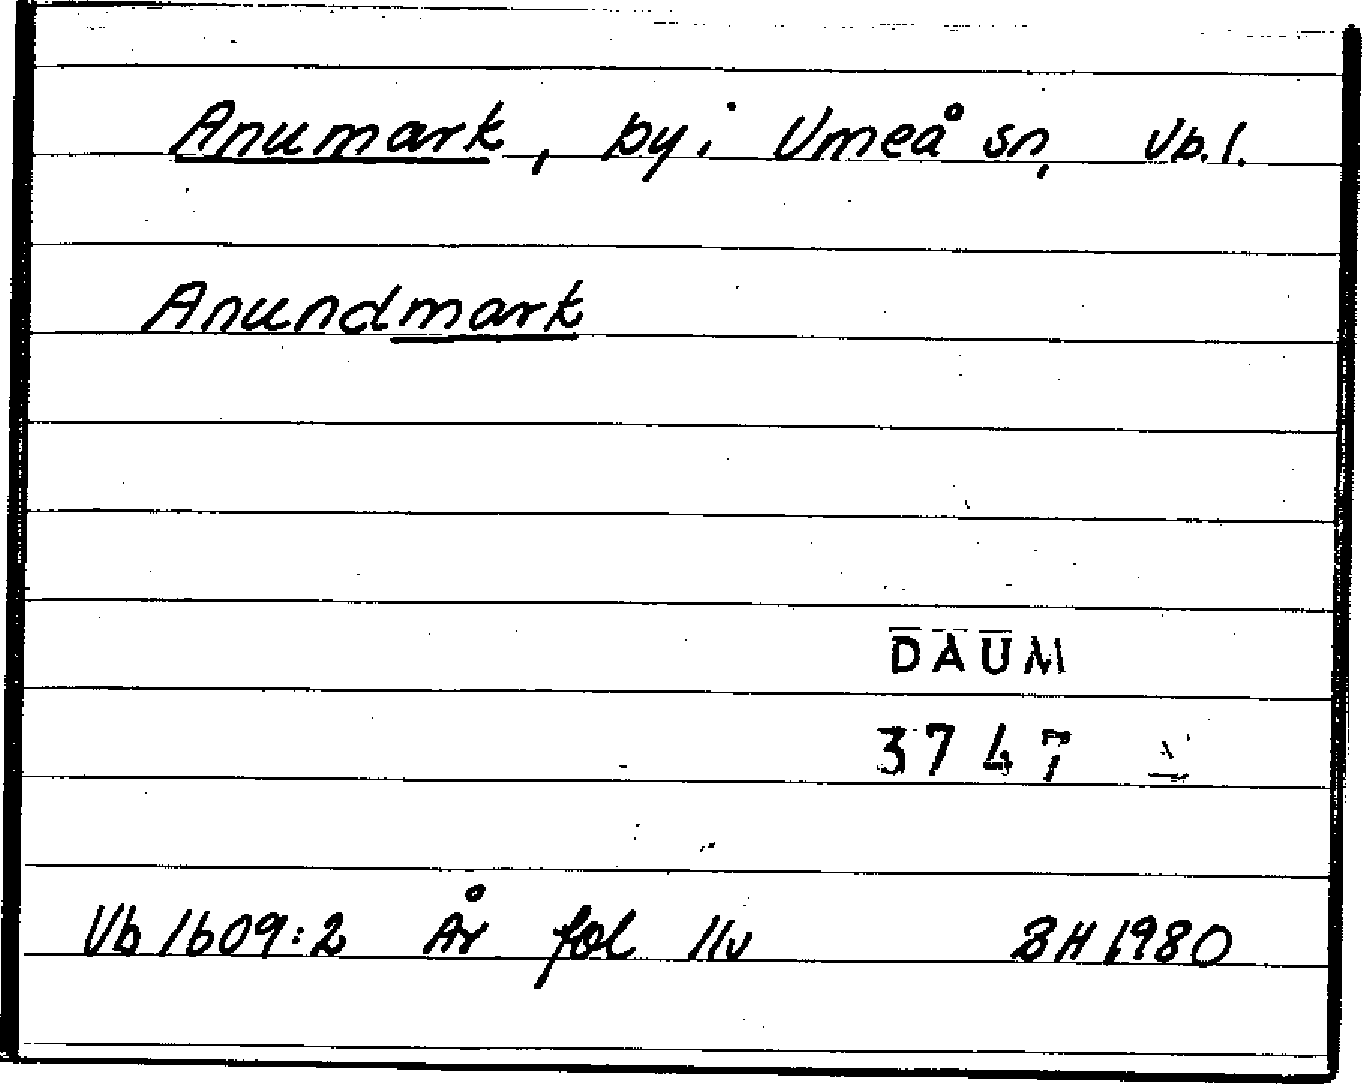 Anumark, by i Umeå sn, Vb. l.
Anundmark
DAUM
3747
Vb 1609:2 År fol 11v BH 1980